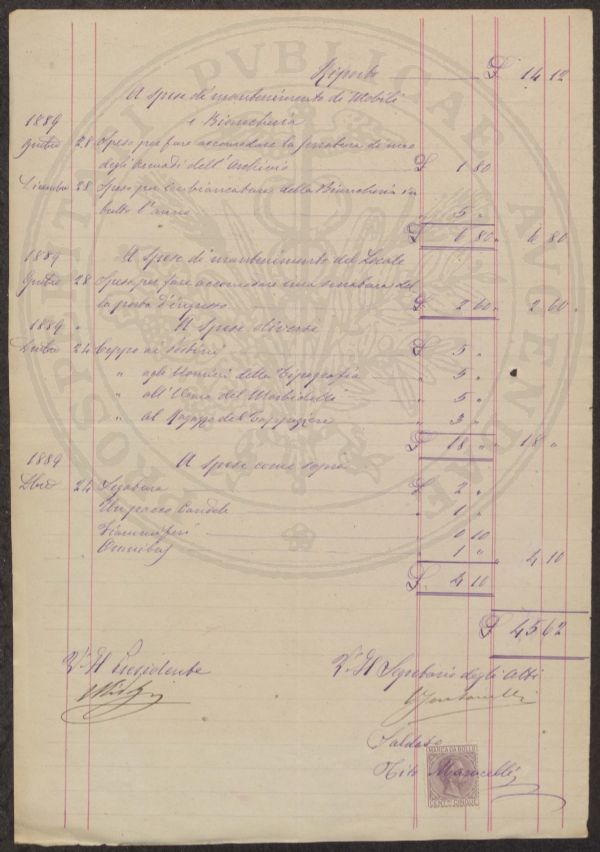 Riporto £ 14 12
A Spese di mantenimento di Mobili
e Biancheria
1889
9mbre 28 Spese per fare accomodare la serratura di uno
degli Armadi dell'Archivio £ 1 80
Dicembre 28 Spese per imbiancatura della Biancheria in
tutto l'anno " 5 "
£ 6 80 " 6 80
1889 A Spese di mantenimento del Locale
9mbre 28 Spese per fare accomodare una serratura del
la porta d'ingresso £ 2 60 " 2 60 "
1889 " A Spese diverse
Dicbre 24 Ceppo ai postini £ 5 "
" agli Uomini della Tipografia " 5 "
" all' del " 5 "
" Al Ragazzo del Tappezziere " 3 "
£ 18 " " 18 "
1889 A Spese come sopra
Xbre 24 Legatura £ 2 "
Un pacco Candele " 1 "
Fiammiferi " 0 10
Omnibus " 1 " " 4 10
£ 4 10
£ 45 62
V° Il Presidente
V° Il Segretario degli Atti
Saldato
Tito
MARCA DA BOLLO
CENT. CINQUE
PUBLICAE AUGENDAE PROSPERITATI